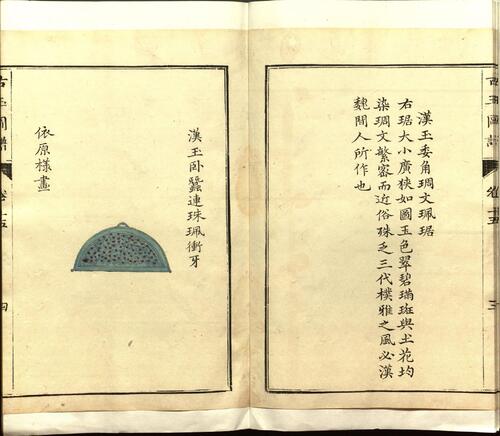 古玉圖譜
卷十五
三
漢玉委角琱文珮琚
右琚大小廣狹如圖玉色翠碧璊斑與土花均
染琱文繁密而近俗殊乏三代樸雅之風必漢
魏間人所作也
漢玉卧蠶連珠珮衝牙
依原樣畫
古玉圖譜
卷十五
四